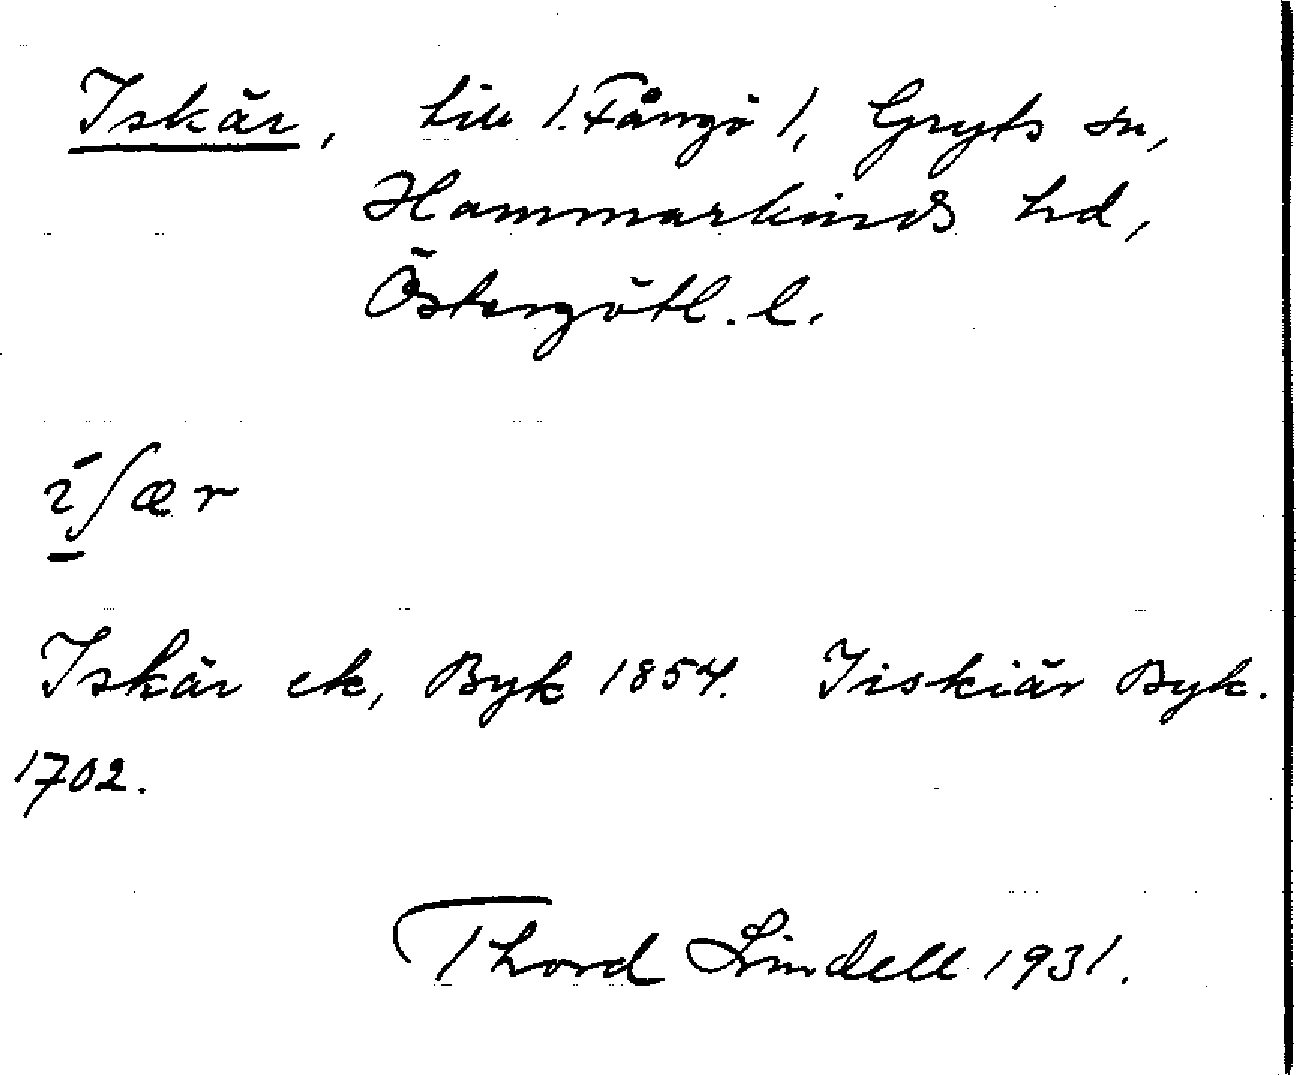 Iskär, /. Fångö /, Gryts sn,
Hammarkinds hd,
Östergötl. l.
īʃær
Iskär ek, Byk 1854. Jiskiär Byk.
1702.
Thord Lindell 1931.